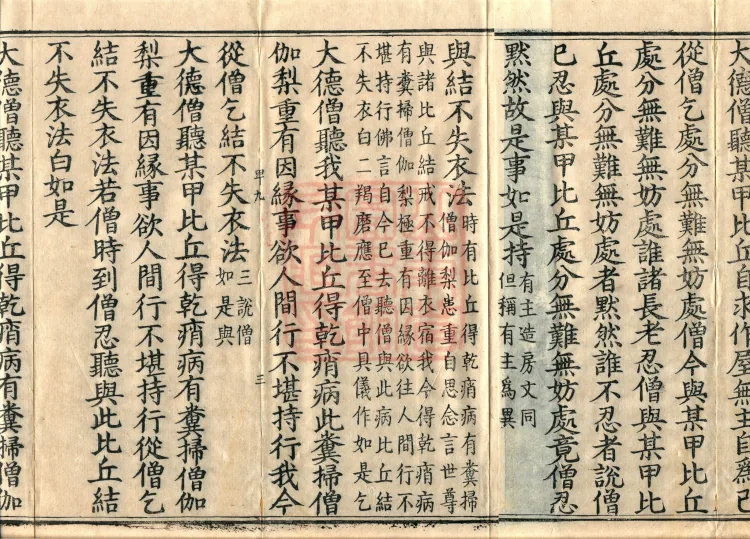 大德僧聽某甲比丘自求作屋無主自爲己
從僧乞處分無難無妨處僧今與某甲比丘
處分無難無妨處誰諸長老忍僧與某甲比
丘處分無難無妨處者默然誰不忍者說僧
已忍與某甲比丘處分無難無妨處竟僧忍
默然故是事如是持有主造房文同
但稱有主爲異
與結不失衣法時有比丘得乾痟病有糞掃
僧伽梨患重自思念言世尊
與諸比丘結戒不得離衣宿我今得乾痟病
有糞掃僧伽梨極重有因緣欲往人間行不
堪持行佛言自今已去聽僧與此病比丘結
不失衣白二羯磨應至僧中具儀作如是乞
大德僧聽我某甲比丘得乾痟病此糞掃僧
伽梨重有因緣事欲人間行不堪持行我今
甲九 三
從僧乞結不失衣法三說僧
如是與
大德僧聽某甲比丘得乾痟病有糞掃僧伽
梨重有因緣事欲人間行不堪持行從僧乞
結不失衣法若僧時到僧忍聽與此比丘結
不失衣法白如是
大德僧聽某甲比丘得乾痟病有糞掃僧伽